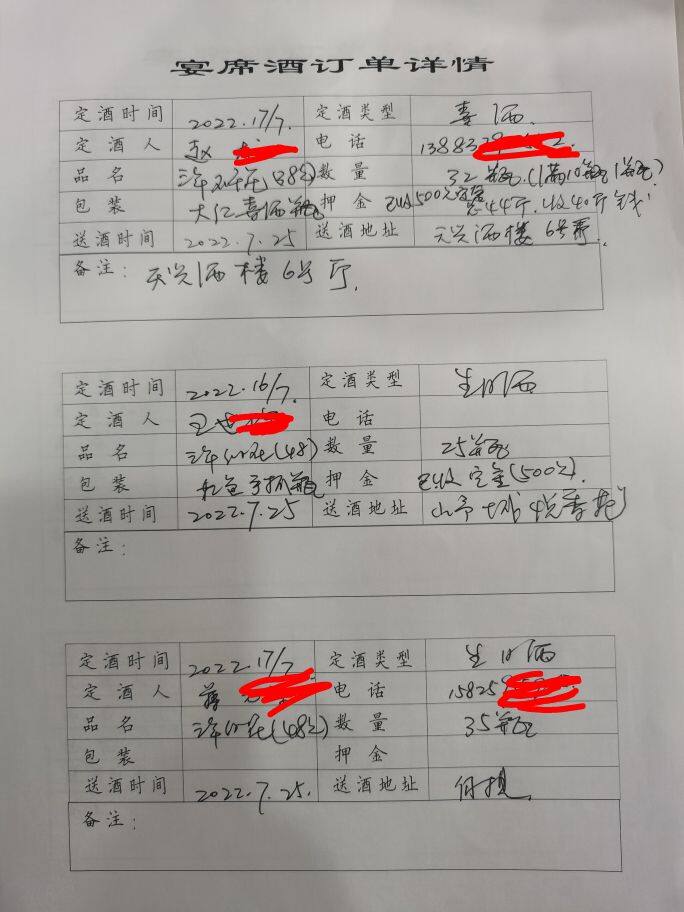 宴席酒订单详情
定酒时间 2022.17/7. 定酒类型 喜酒.
定酒人 赵 电话 13883
品名 三年 (38°) 数量 32瓶.(1满10瓶 1瓶)
包装 大红喜酒瓶 押金 已收500元 44斤.收40斤钱
送酒时间 2022.7.25 送酒地址 天兴酒楼6号厅.
备注： 天兴酒楼6号厅.
定酒时间 2022.16/7. 定酒类型 生日酒
定酒人 王 电话
品名 三年 (48) 数量 25瓶
包装 红色手抓瓶 押金 已收定金(500元).
送酒时间 2022.7.25 送酒地址
备注：
定酒时间 2022.17/7. 定酒类型 生日酒
定酒人 蒋 电话 15825
品名 三年 (48°) 数量 35瓶
包装 押金
送酒时间 2022.7.25. 送酒地址
备注：